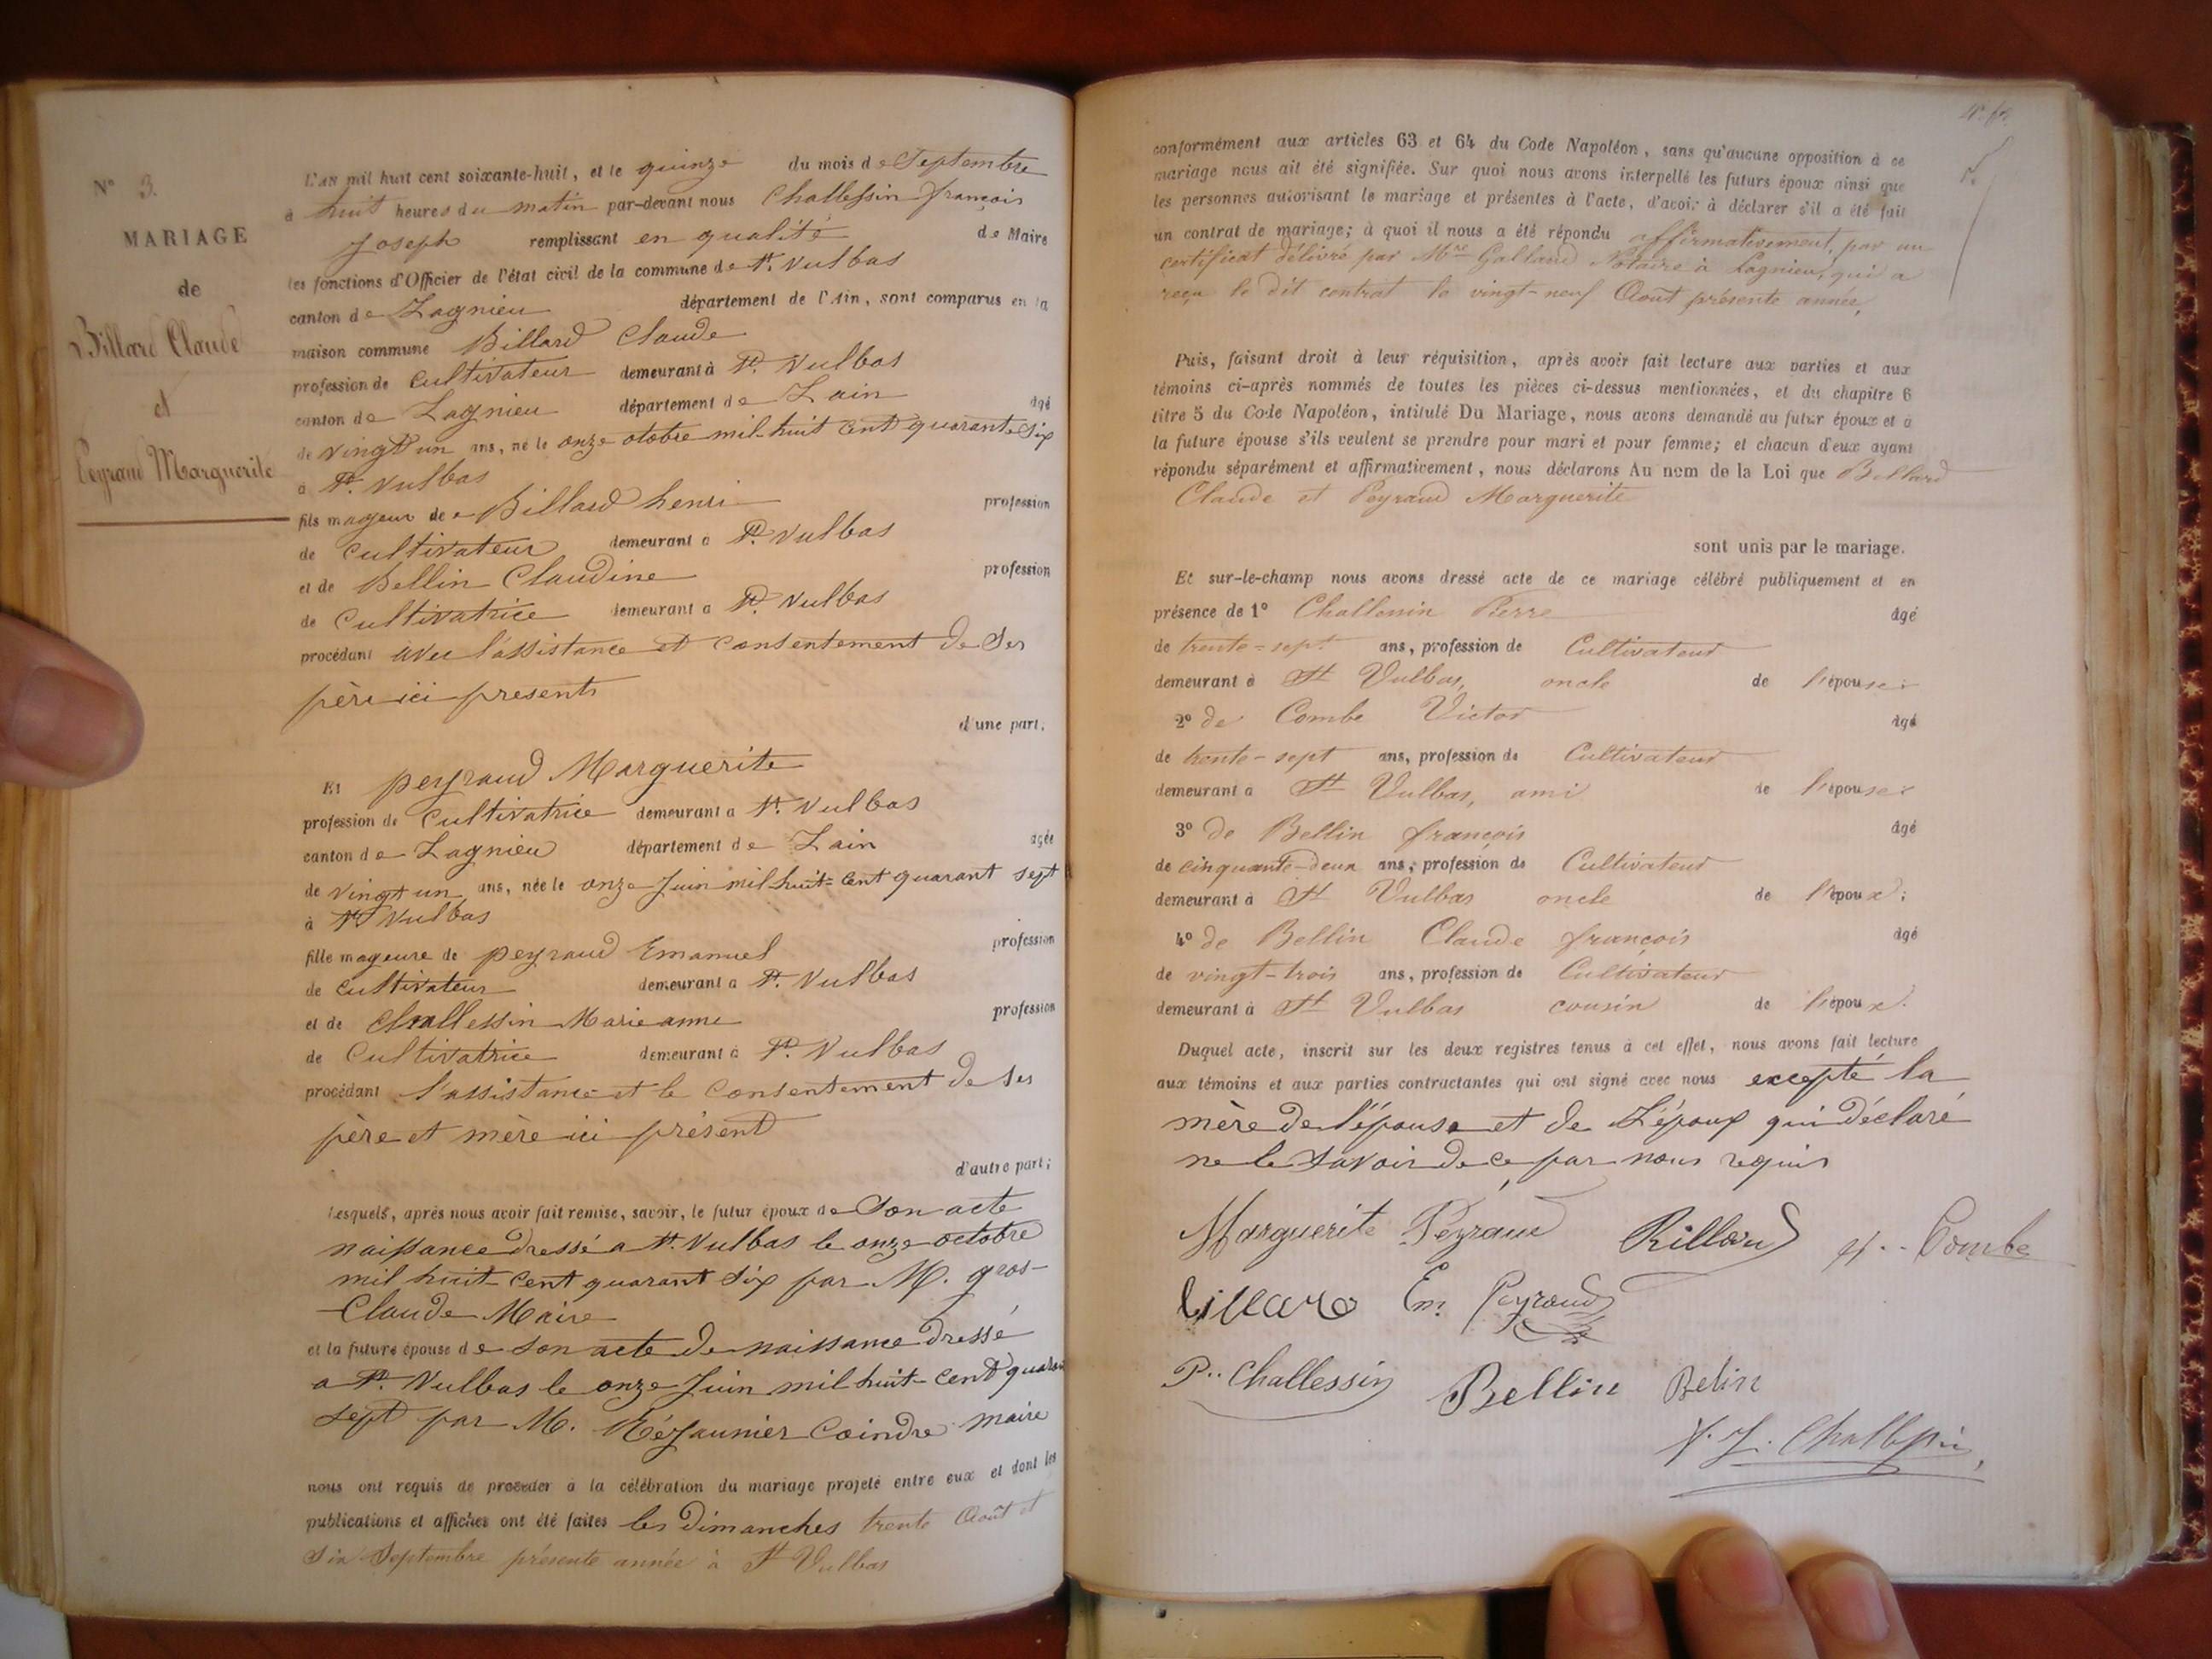 N° 3.
MARIAGE
de
Billard Claude
et
Peyraud Marguerite
L'an mil huit cent soixante-huit, et le quinze du mois de Septembre
à huit heures du matin par-devant nous Challessin françois
Joseph remplissant en qualité de Maire
les fonctions d'Officier de l'état civil de la commune de St. Vulbas
canton de Lagnieu département de l'Ain, sont comparus en la
maison commune Billard Claude
profession de Cultivateur demeurant à St. Vulbas
canton de Lagnieu département de Lain âgé
de vingt un ans, né le onze otobre mil huit cent quarante six
à St. Vulbas
fils mageur de Billard henri profession
de Cultivateur demeurant à St. Vulbas
et de Bellin Claudine profession
de Cultivatrice demeurant à St. Vulbas
procédant avec l'assistance et consentement de Ses
père ici présents
d'une part.
Et peyraud Marguerite
profession de Cultivatrice demeurant à St. Vulbas
canton de Lagnieu département de Lain âgée
de vingt un ans, née le onze Juin mil huit cent quarant sept
à St Vulbas
fille mageure de peyraud Emanuel profession
de Cultivateur demeurant à St. Vulbas
et de Challessin Marieanne profession
de Cultivatrice demeurant à St. Vulbas
procédant l'assistance et le Consentement de Ses
père et mère ici présent
d'autre part;
Lesquels, après nous avoir fait remise, savoir, le futur époux de Son acte
naissance dressé a St. Vulbas le onze octobre
mil huit cent quarant six par M. gros
Claude Maire
et la future épouse de Son acte de naissance dressé
a St. Vulbas le onze Juin mil huit cent quaran
sept par M. Coindre maire
nous ont requis de procéder à la célébration du mariage projeté entre eux et dont les
publications et affiches ont été faites les Dimanches trente Août et
Six Septembre présente année à St Vulbas
conformément aux articles 63 et 64 du Code Napoléon, sans qu'aucune opposition à ce
mariage nous ait été signifiée. Sur quoi nous avons interpellé les futurs époux ainsi que
les personnes autorisant le mariage et présentes à l'acte, d'avoir à déclarer s'il a été fait
un contrat de mariage; à quoi il nous a été répondu affirmativement, par un
certificat délivré par Mre Galland Notaire à Lagnieu, qui a
reçu le dit contrat le vingt-neuf Août présente année,
Puis, faisant droit à leur réquisition, après avoir fait lecture aux parties et aux
témoins ci-après nommés de toutes les pièces ci-dessus mentionnées, et du chapitre 6
titre 5 du Code Napoléon, intitulé Du Mariage, nous avons demandé au futur époux et à
la future épouse s'ils veulent se prendre pour mari et pour femme; et chacun d'eux ayant
répondu séparément et affirmativement, nous déclarons Au nom de la Loi que Billard
Claude et Peyraud Marguerite
sont unis par le mariage.
Et sur-le-champ nous avons dressé acte de ce mariage célébré publiquement et en
présence de 1° Challessin Pierre âgé
de trente-sept ans, profession de Cultivateur
demeurant à St Vulbas, oncle de l'épouse;
2° de Combe Victor âgé
de trente-sept ans, profession de Cultivateur
demeurant à St Vulbas, ami de l'épouse;
3° de Bellin françois âgé
de cinquante-deux ans, profession de Cultivateur
demeurant à St Vulbas oncle de l'époux;
4° de Bellin Claude françois âgé
de vingt-trois ans, profession de Cultivateur
demeurant à St Vulbas cousin de l'époux.
Duquel acte, inscrit sur les deux registres tenus à cet effet, nous avons fait lecture
aux témoins et aux parties contractantes qui ont signé avec nous excepté la
mère de l'épouse et de L'époux qui déclaré
ne le Savoir de ce par nous requis
Marguerite Peyraud Billard Combe
billard Em Peyraud
P.. Challessin Bellin Belin
f. J. Challessin